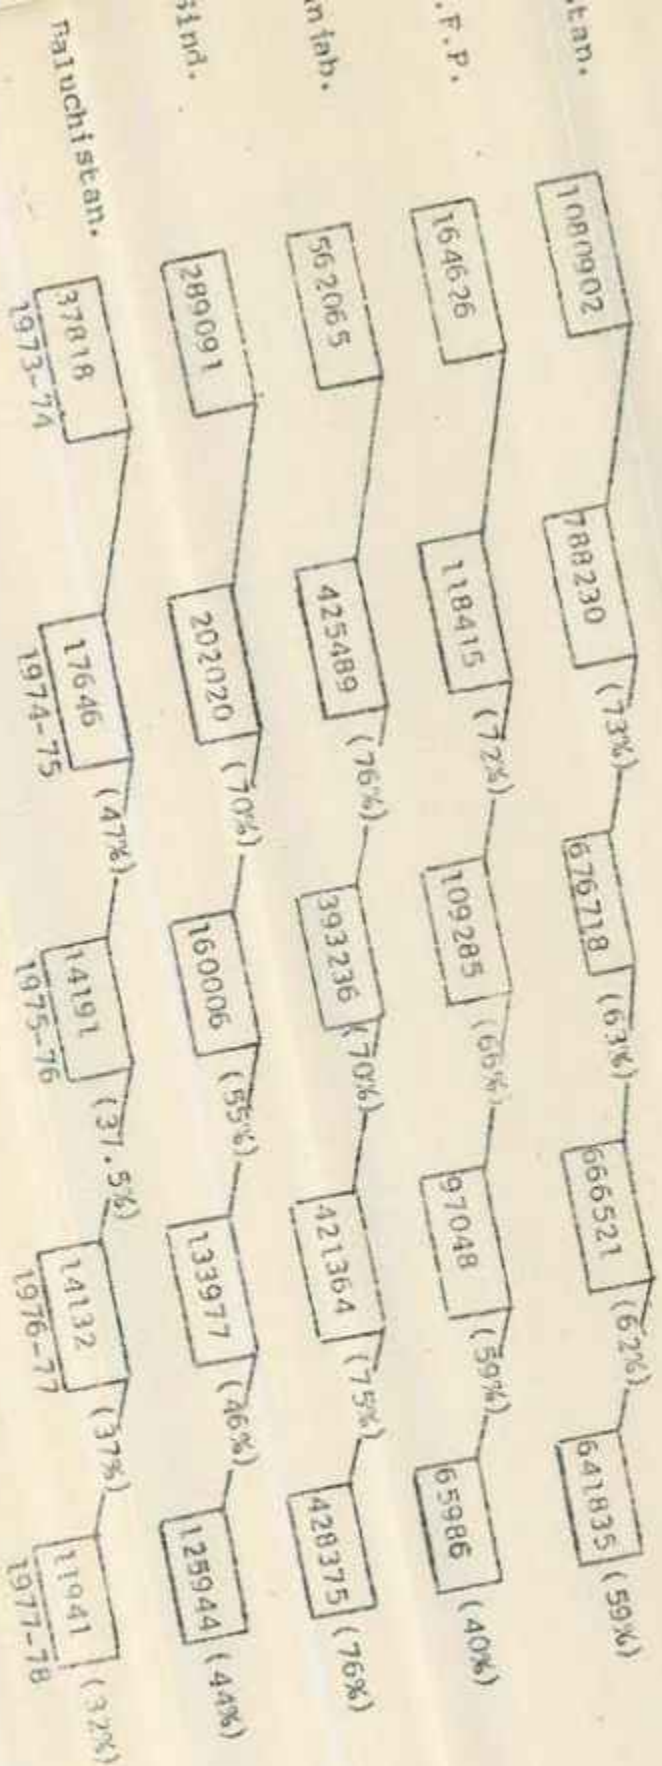 stan. 1080902 788230 (73%) 676718 (63%) 666521 (62%) 641835 (59%)
.F.P. 164626 118415 (72%) 109285 (66%) 97048 (59%) 65986 (40%)
njab. 562065 425489 (76%) 393236 (70%) 421364 (75%) 428375 (76%)
Sind. 289091 202020 (70%) 160006 (55%) 133977 (46%) 125944 (44%)
Baluchistan. 37818 17646 (47%) 14191 (37.5%) 14132 (37%) 11941 (32%)
1973-74 1974-75 1975-76 1976-77 1977-78